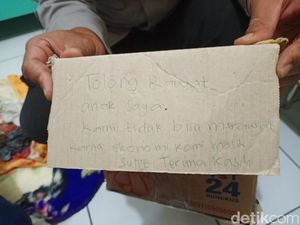 Tolong Rawat
anak saya.
Kami tidak bisa merawat
karna ekonomi kami masih
sulit Terima kasih
24
detikcom